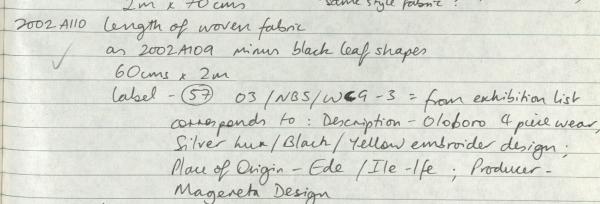 2m x 70cms same style fabric?
2002 A110 length of woven fabric
as 2002A109 minus black leaf shapes
60cms x 2m
label - 57 03/NBS/WCG-3 = from exhibition list
corresponds to: Description - Oloboro 4 piece wear,
Silver lurex/Black/Yellow embroider design;
Place of Origin - Ede / Ile-Ife; Producer -
Mageneta Design